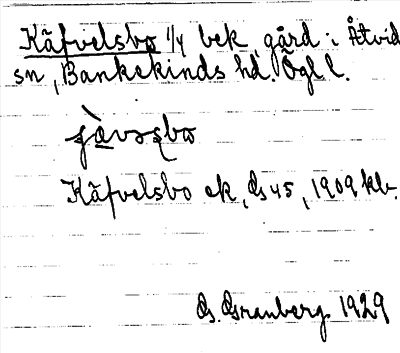 Käfvelsbo 1/4 bek, gård i Åtvid
sn, Bankekinds hd. Ögl l.
Käfvelsbo ek, Gs 45, 1909 kb.
G. Granberg 1929